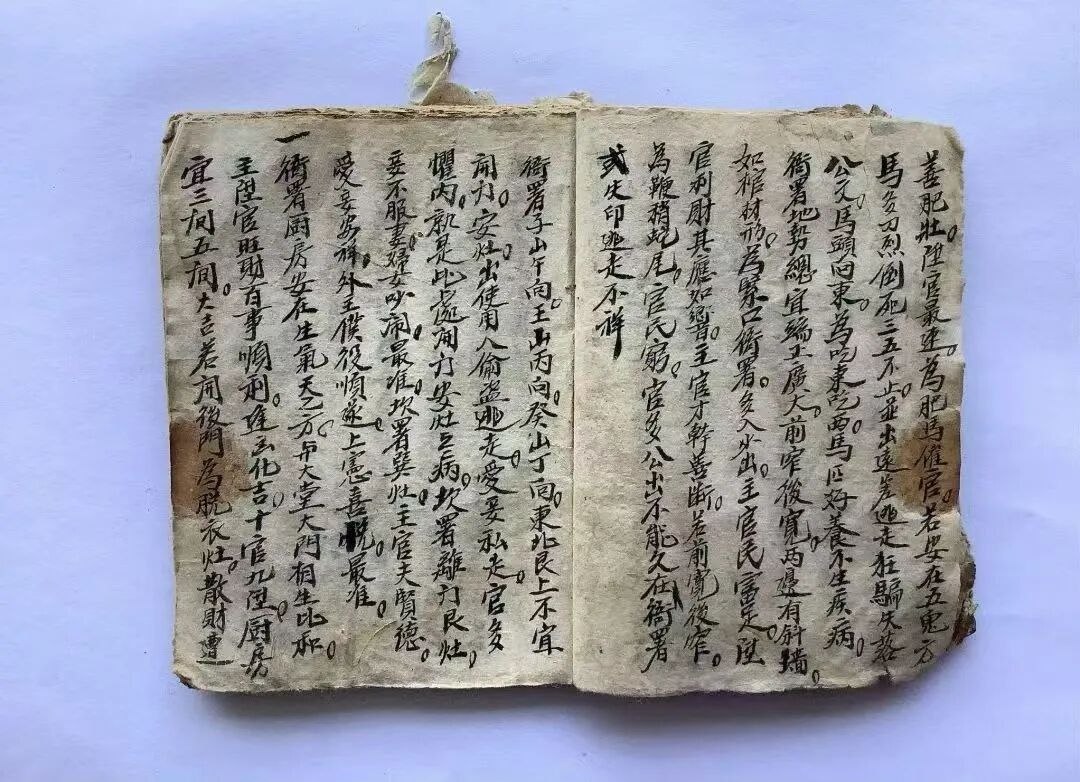 善肥壯。陞官最速。為肥馬催官。若安在五鬼方
馬多刃烈倒死。三五不止。並出遠差逃走狂騙失落
公文。馬頭向東。為吃東吃西。馬匹好養不生疾病。
衙署地勢。總宜端正廣大。前窄後寬。兩邊有斜墻。
如棺材形。為緊口衙署。多入少出。主官民富足。陞
官利財其應如響。主官才幹善断。若前寬後窄。
為鞭稍蛇尾。官民窮。官多公出。不能久在衙署
或失印逃走不祥
衙署子山午向。壬山丙向。癸山丁向。東北艮上不宜
開門。安灶。出使用人偷盜逃走。愛妾私走。官多
懼內。就是此處開門安灶之病。坎署離門艮灶。
妾不服妻。婦女吵鬧最准。坎署巽灶。主官夫賢德。
愛妾安祥。外主僕役順遂。上憲喜悅。最准。
一衙署厨房安在生氣天乙方。與大堂大門相生比和
主陞官旺財百事順利。逢凶化吉。十官九陞。厨房
宜三間五間。大吉。若開後門為脫衣灶。散財遭